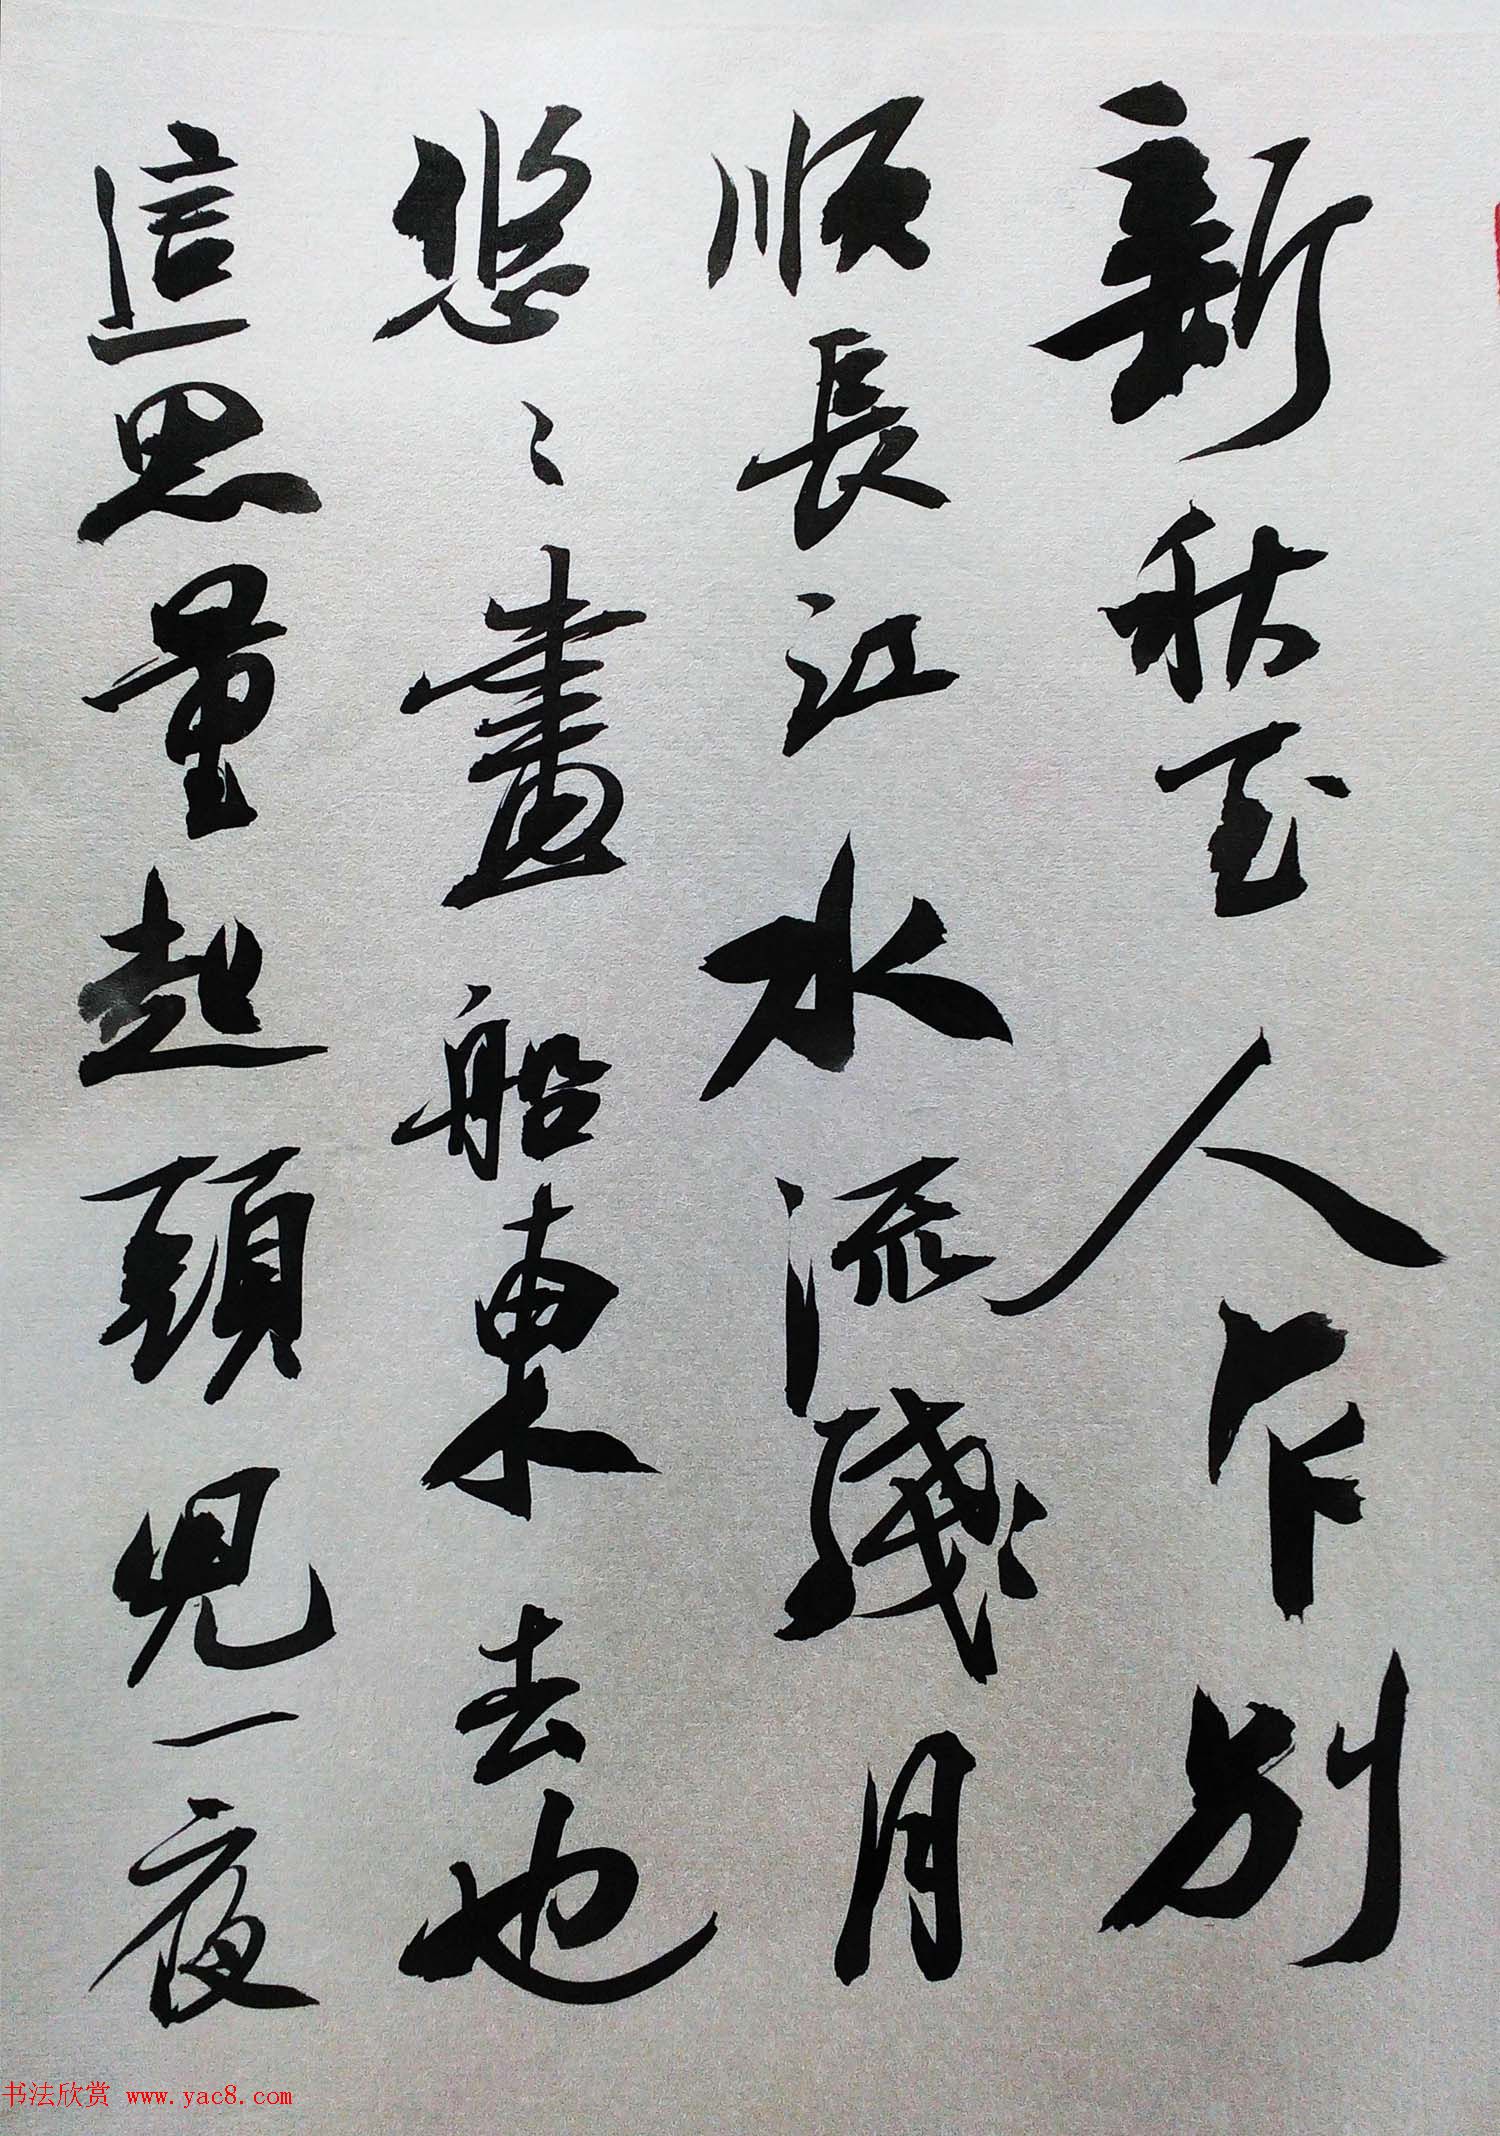 新秋至人乍別
順長江水流殘月
悠〻畫船東去也
這思量起頭兒一夜
书法欣赏 www.yac8.com